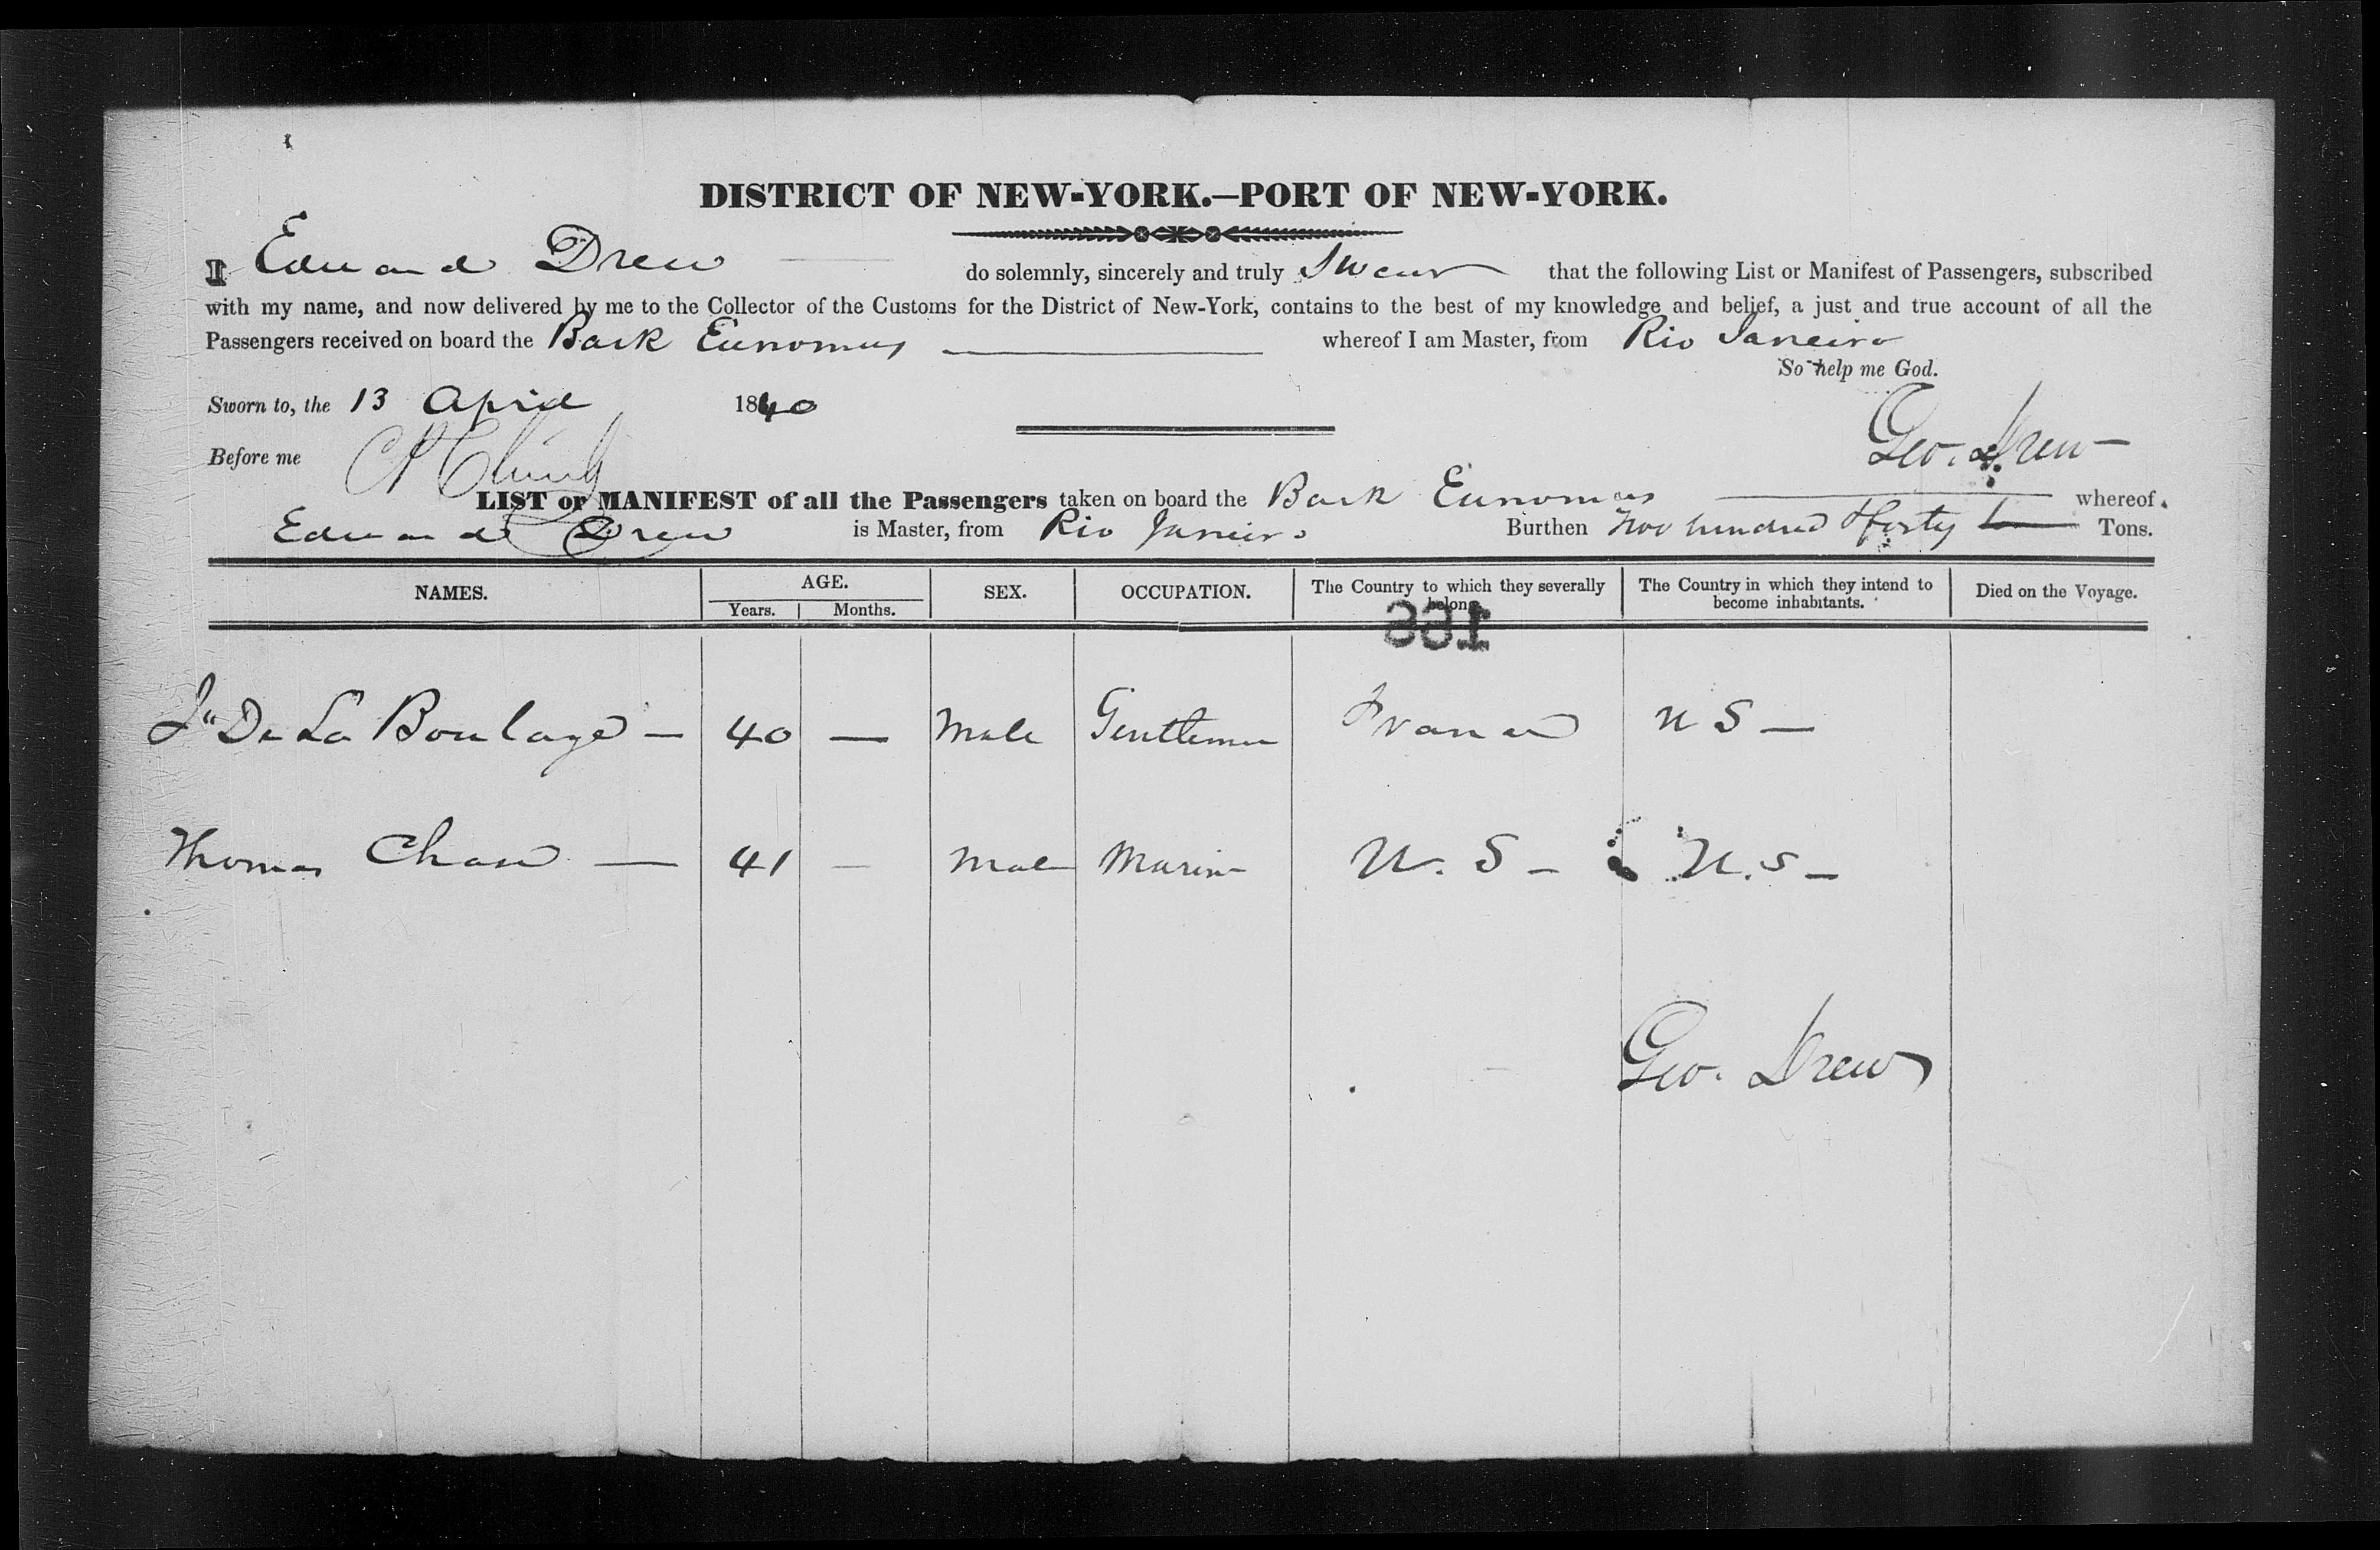 DISTRICT OF NEW-YORK.—PORT OF NEW-YORK.
I Edward Drew do solemnly, sincerely and truly Swear that the following List or Manifest of Passengers, subscribed
with my name, and now delivered by me to the Collector of the Customs for the District of New-York, contains to the best of my knowledge and belief, a just and true account of all the
Passengers received on board the Bark Eunomus whereof I am Master, from Rio Janeiro
So help me God.
Sworn to, the 13 April 1840
Geo. Drew
Before me
LIST or MANIFEST of all the Passengers taken on board the Bark Eunomus whereof
Edward Drew is Master, from Rio Janeiro Burthen Two hundred & forty Tons.
NAMES. AGE. SEX. OCCUPATION. The Country to which they severally belong. The Country in which they intend to become inhabitants. Died on the Voyage.
Years. Months.
166
De La Boulaye — 40 — Male Gentleman France U S —
Thomas Chase — 41 — Male Marine U. S — U. S —
Geo. Drew